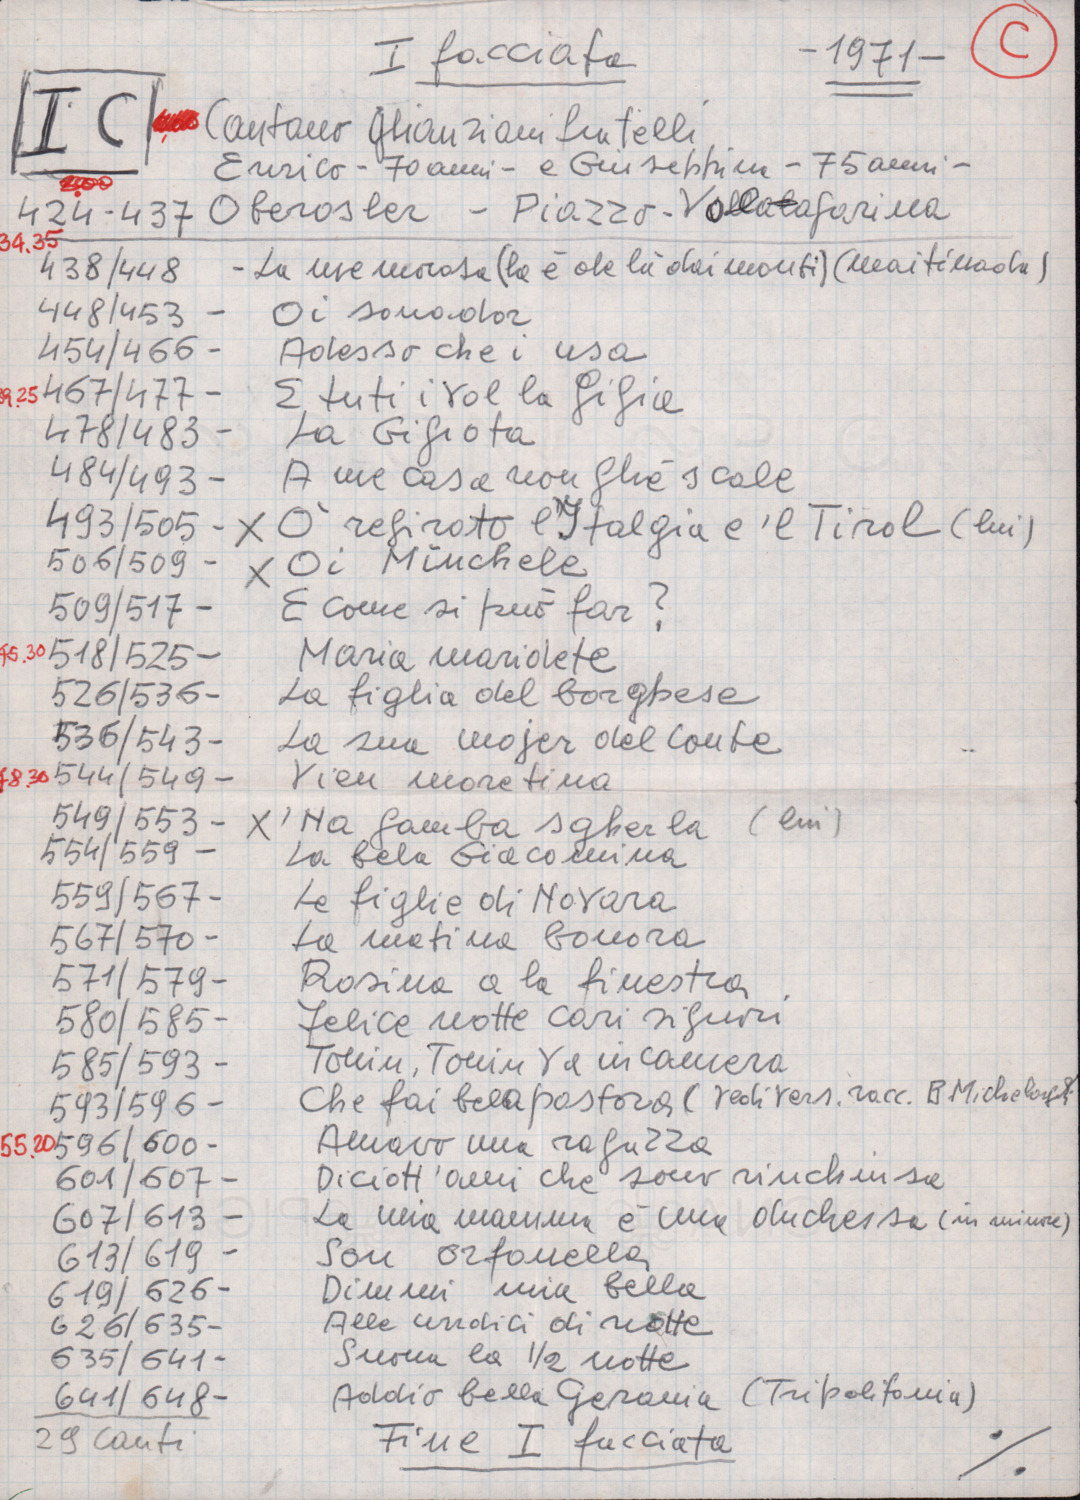 I facciata -1971- C
I C Cantano gli anziani fratelli
Enrico - 70 anni - e Giuseppina - 75 anni -
424-437 Oberosler - Piazzo - Vallagarina
34.35
438/448 - La me morosa (la è de là dai monti) (maitinada)
448/453 - Oi sonador
454/466 - Adesso che i usa
39.25 467/477 - E tuti i vol la Gigia
478/483 - La Gigiota
484/493 - A me casa non ghè scale
493/505 - X O regirato l'Italgia e 'l Tirol (lui)
506/509 - X Oi Minchele
509/517 - E come si può far?
45.30 518/525 - Maria maridete
526/536 - La figlia del borghese
536/543 - La sua mojer del Conte
48.30 544/549 - Vien moretina
549/553 - X 'Na gamba sgherla (lui)
554/559 - La bela Giacomina
559/567 - Le figlie di Novara
567/570 - La matina bonora
571/579 - Rosina a la finestra
580/585 - Felice notte cari signori
585/593 - Tonin, Tonin va in camera
593/596 - Che fai bela pastora (vedi vers. racc. B Michelangeli
55.20 596/600 - Amavo una ragazza
601/607 - Diciott'anni che sono rinchiusa
607/613 - La mia mamma è una duchessa (in minore)
613/619 - Son orfanella
619/626 - Dimmi mia bella
626/635 - Alle undici di notte
635/641 - Suona la 1/2 notte
641/648 - Addio bella Gerania (Tripolitania)
29 Canti Fine I facciata ./.